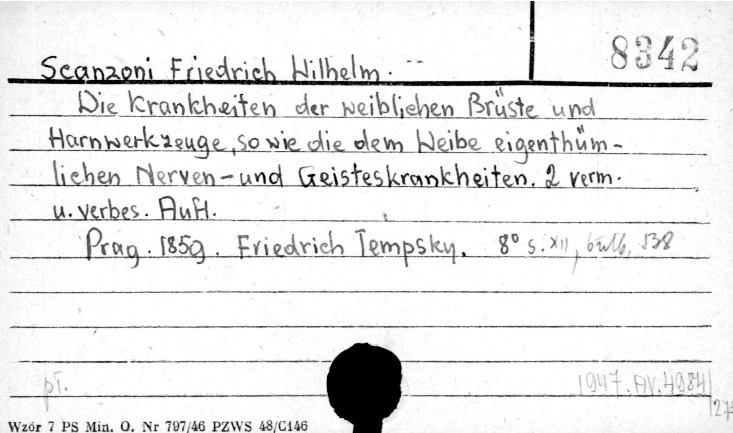 8342
Scanzoni Friedrich Wilhelm.
Die Krankheiten der weiblichen Brüste und
Harnwerkzeuge, so wie die dem Weibe eigenthüm-
lichen Nerven- und Geisteskrankheiten. 2 verm.
u. verbes. Aufl.
Prag. 1859. Friedrich Tempsky. 8° s. XII, 538
pt.
1947.AV.4984
Wzór 7 PS Min. O. Nr 797/46 PZWS 48/C146